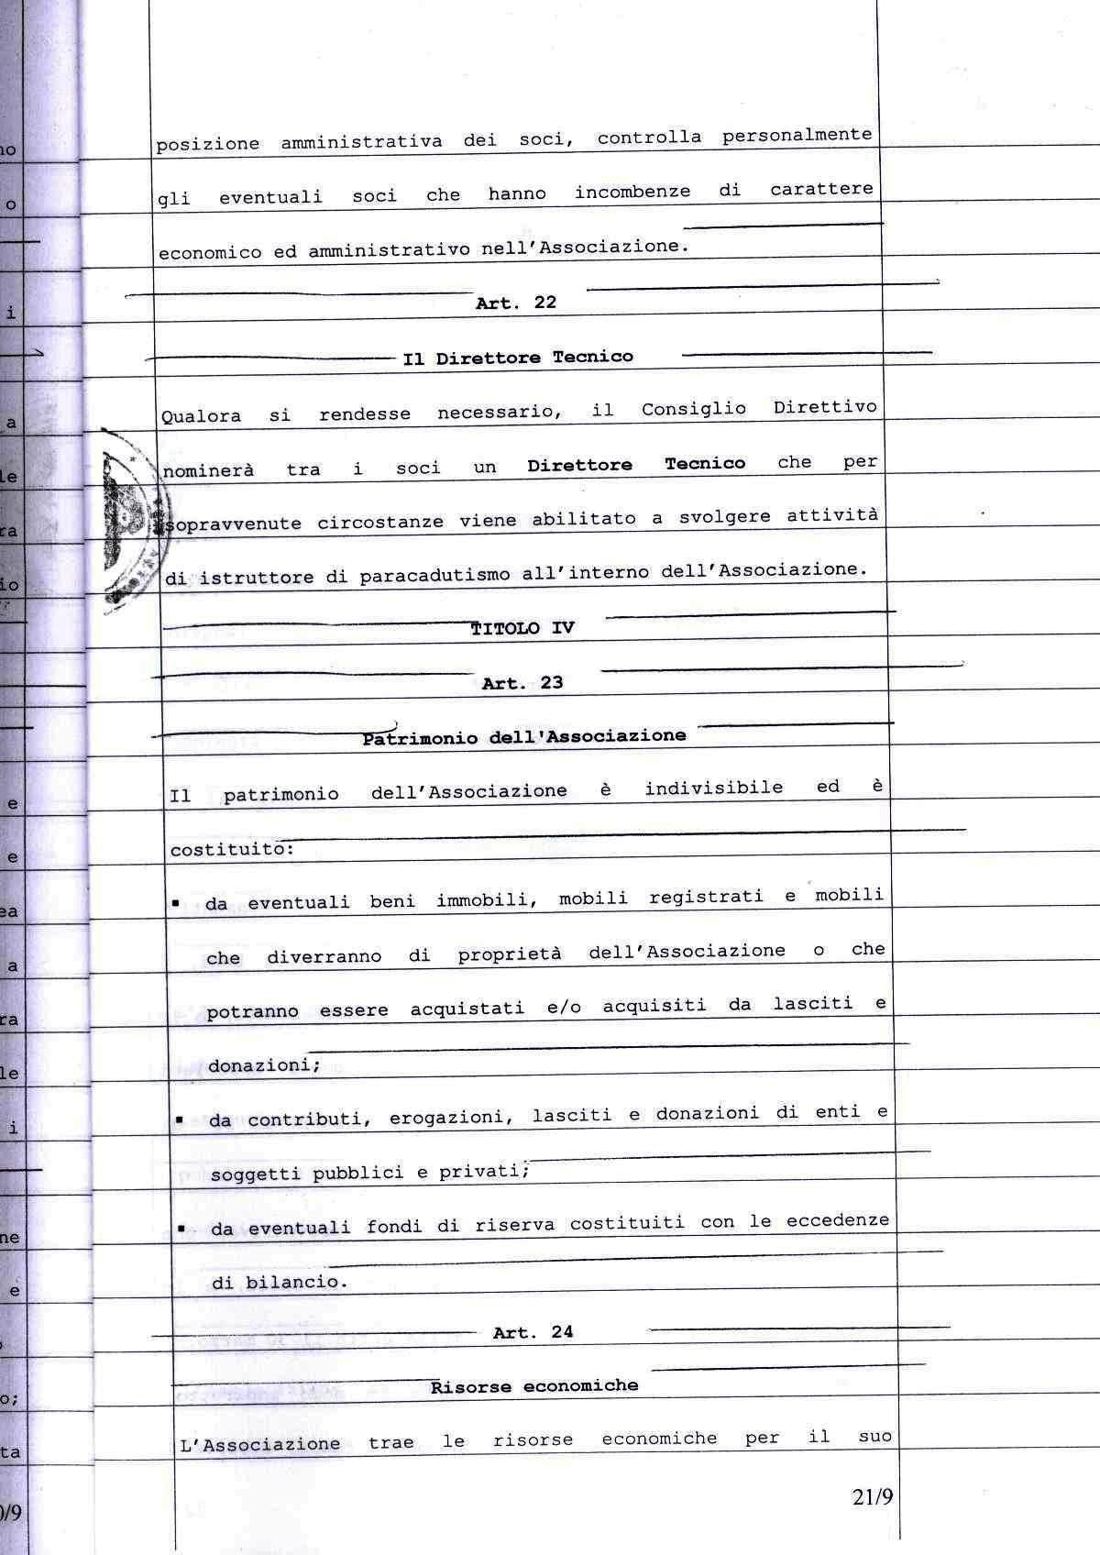 posizione amministrativa dei soci, controlla personalmente
gli eventuali soci che hanno incombenze di carattere
economico ed amministrativo nell'Associazione.
Art. 22
Il Direttore Tecnico
Qualora si rendesse necessario, il Consiglio Direttivo
nominerà tra i soci un Direttore Tecnico che per
sopravvenute circostanze viene abilitato a svolgere attività
di istruttore di paracadutismo all'interno dell'Associazione.
TITOLO IV
Art. 23
Patrimonio dell'Associazione
Il patrimonio dell'Associazione è indivisibile ed è
costituito:
▪ da eventuali beni immobili, mobili registrati e mobili
che diverranno di proprietà dell'Associazione o che
potranno essere acquistati e/o acquisiti da lasciti e
donazioni;
▪ da contributi, erogazioni, lasciti e donazioni di enti e
soggetti pubblici e privati;
▪ da eventuali fondi di riserva costituiti con le eccedenze
di bilancio.
Art. 24
Risorse economiche
L'Associazione trae le risorse economiche per il suo
21/9